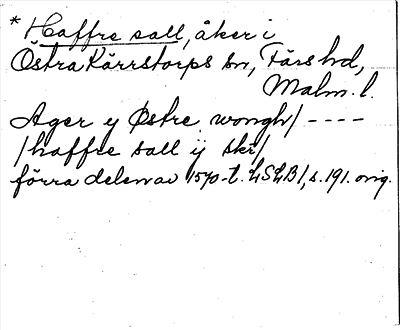 * Haffre sall, åker i
Östra Kärrstorps sn, Färs hd,
Malm. l.
Ager y Østre wongh/ ----
/haffre sall ij skr/
förra delen av 1570-t. LSLB1, s. 191. orig.